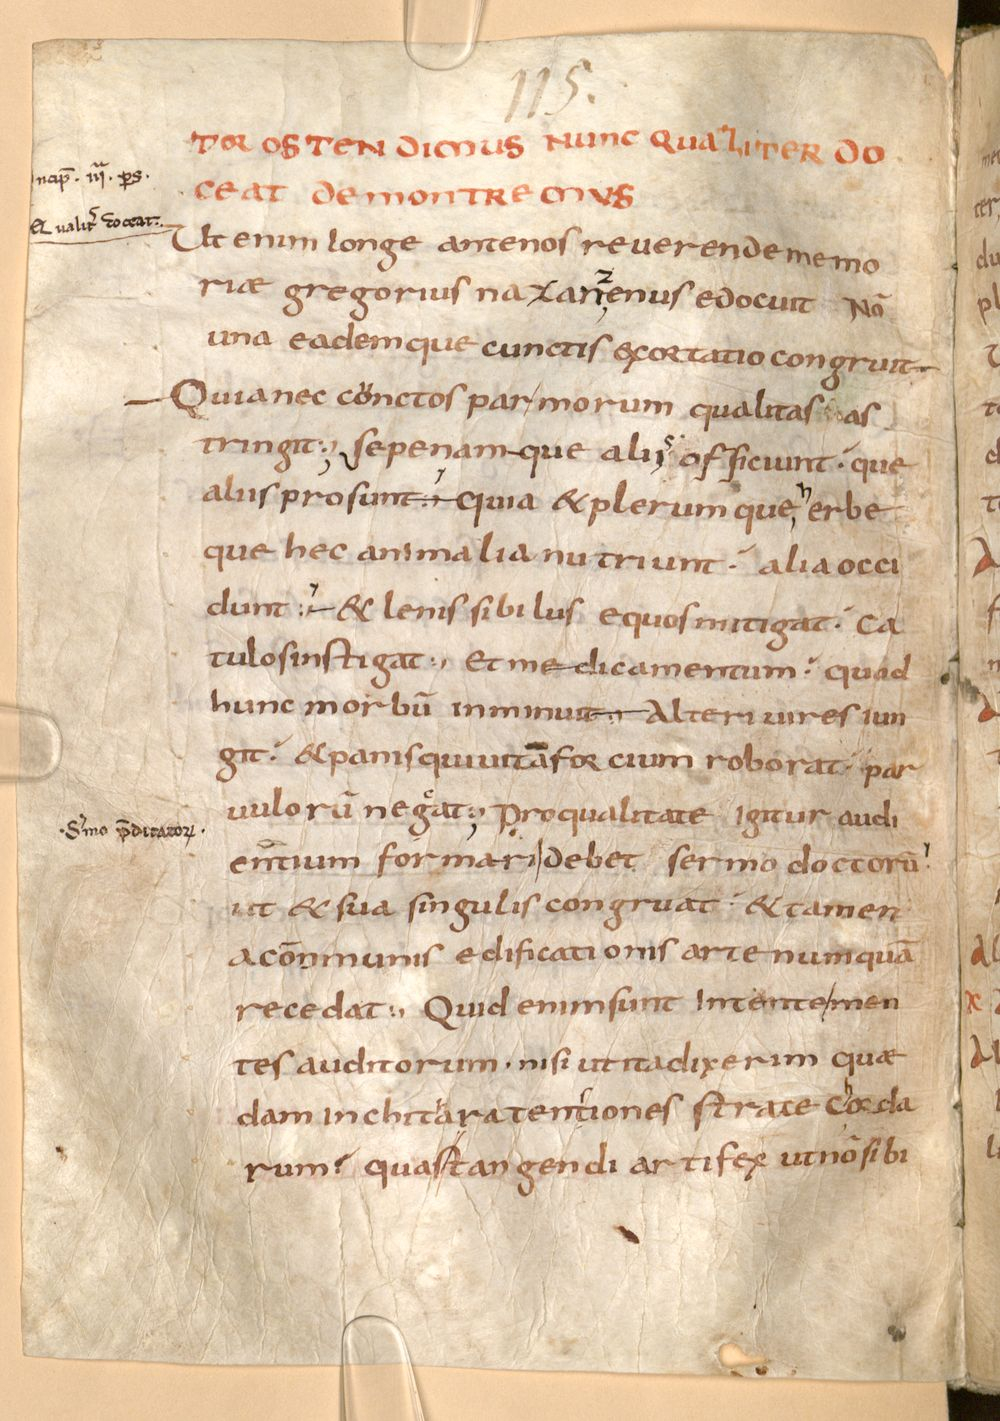 115.
TOR OSTENDIMUS NUNC QUALITER DO
CEAT DEMONTREMUS
ncip̄ · iii · ps ·
Et ualit͛ doceat:.
Ut enim longe antenos reuerende memo
riæ gregorius naxanzenus edocuit Nō
una eademque cunctis excortatio congruit
Quia nec cunctos par morum qualitas as
tringit:, sepe namque aliis officiunt · que
aliis prosunt:, quia & plerumque herbe
que hec animalia nutriunt · alia occi
dunt:, & lenis sibilus equos mitigat · Ca
tulos instigat:, Et medicamentum · quod
hunc morbū inminuit:, Alteri uires iun
git · & panis qui uitā forcium roborat · par
uulorū negat:, Pro qualitate igitur audi
·S͛mo p̄dicatorꝝ·
entium formari debet sermo doctorū
ut & sua singulis congruat · & tamen
a cōmmunis edificationis arte numquā
recedat:, Quid enim sunt intente men
tes auditorum · nisi ut ita dixerim quæ
dam in chitara tentiones strate chorda
rum · quas tangendi artifex ut nō sibi